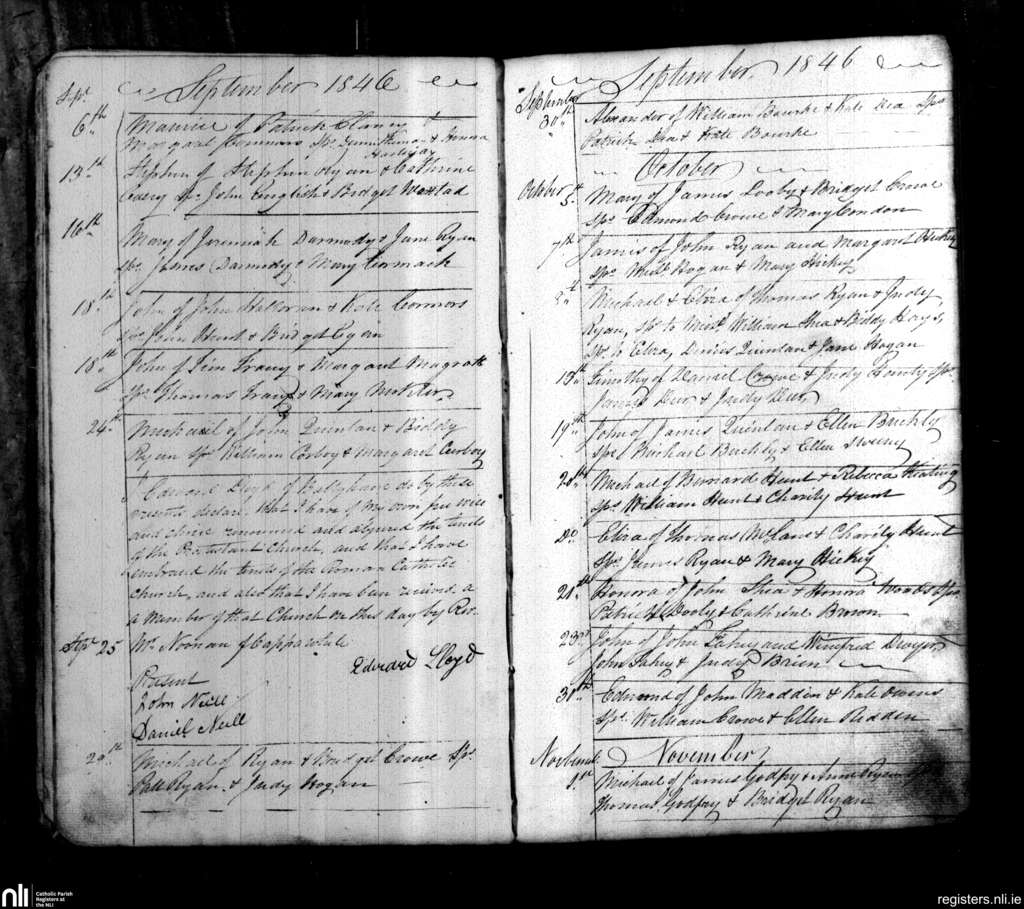 September 1846
Sepr.
6th Maurice of Patrick Clancy &
Margaret Connors Sps. & Honora
Hartigan
13th Stephen of Stephen Ryan & Cathrine
Casey Sps. John English & Bridget
16th Mary of Jeremiah Darmody & Jane Ryan
Sps. James Darmody & Mary Cormack
18th John of John Halloran & Kate Connors
Sps. John Hunt & Bridget Egan
18th John of Tim Tracy & Margaret Magrath
Sps. Thomas Tracy & Mary
24th Michael of John Quinlan & Biddy
Ryan Sps. William Corboy & Margaret Corboy
I Edward Lloyd of do by these
presents declare that I have of my own free will
and choice renounced and abjured the tenets
of the Protestant Church, and that I have
embraced the tenets of the Roman Catholic
Church, and also that I have been received a
a Member of that Church on this day by Rev.
Sepr. 25 Mr. Noonan of Cappawhite
Edward Lloyd
Present
John Neill
Daniel Neill
29th Michael of Ryan & Bridget Crowe Sps.
Patt Ryan & Judy Hogan
September 1846
September
30th Alexander of William Bourke & Kate Dea Sps.
Patrick Dea & Kate Bourke
October
October 5th Mary of James Looby & Bridget Crowe
Sps. Edmond Crowe & Mary Condon
7th James of John Ryan and Margaret Hickey
Sps. Michl. Hogan & Mary Hickey
Michael & Eliza of Thomas Ryan & Judy
Ryan, Sps. to Michl. William Shea & Biddy Hays,
Sps. to Eliza, Dennis Quinlan & Jane Hogan
15th Timothy of Daniel & Judy Sps.
James & Judy
19th John of James Quinlan & Ellen Buckly
Sps. Michael Buckly & Ellen Sweeny
20th Michael of Bernard Hunt & Rebecca Keating
Sps. William Hunt & Charity Hunt
Do Eliza of Thomas & Charity Hunt
Sps. James Ryan & Mary Hickey
21st Honora of John Shea & Honora Woods Sps.
Patrick Dooly & Cathrine Brown
23rd John of John Fahey and Winefred Dwyer
John Fahey & Judy Brien
31st Edmond of John Madden & Kate Owens
Sps. William Crowe & Ellen Ridden
November
Novbember
1st Michael of James Godfry & Anne Ryan
Thomas Godfry & Bridget Ryan
nli
Catholic Parish
Registers at
the NLI
registers.nli.ie